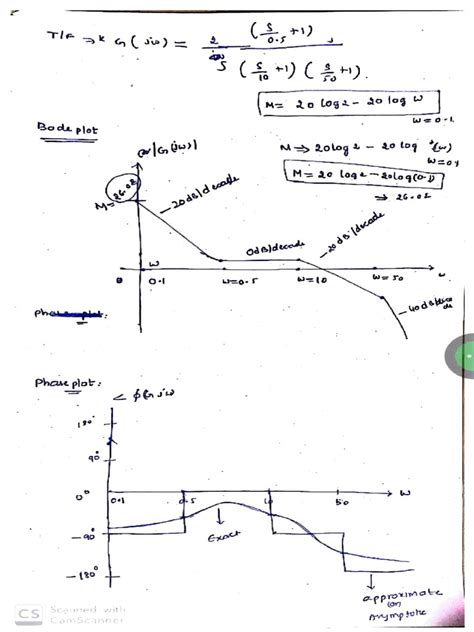 T/F → K G(jω) = 2 (S/0.5 +1)
S (S/10 +1) (S/50 +1).
M = 20 log 2 - 20 log ω
ω = 0.1
Bode plot
|G(jω)|
M ⇒ 20 log 2 - 20 log (ω)
ω = 0.1
M = 20 log 2 - 20 log(0.1)
⇒ 26.02
M = 26.02
-20 dB/decade
0dB/decade
-20 dB/decade
ω
0 0.1 ω=0.5 ω=10 ω=50 ω
-40 dB/deca
de
Phase plot:
Phase plot:
∠ φ G(jω)
180°
90°
0° 0.1 0.5 10 50 ω
-90°
Exact
-180°
approximate
(or)
Asymptote
CS Scanned with
CamScanner